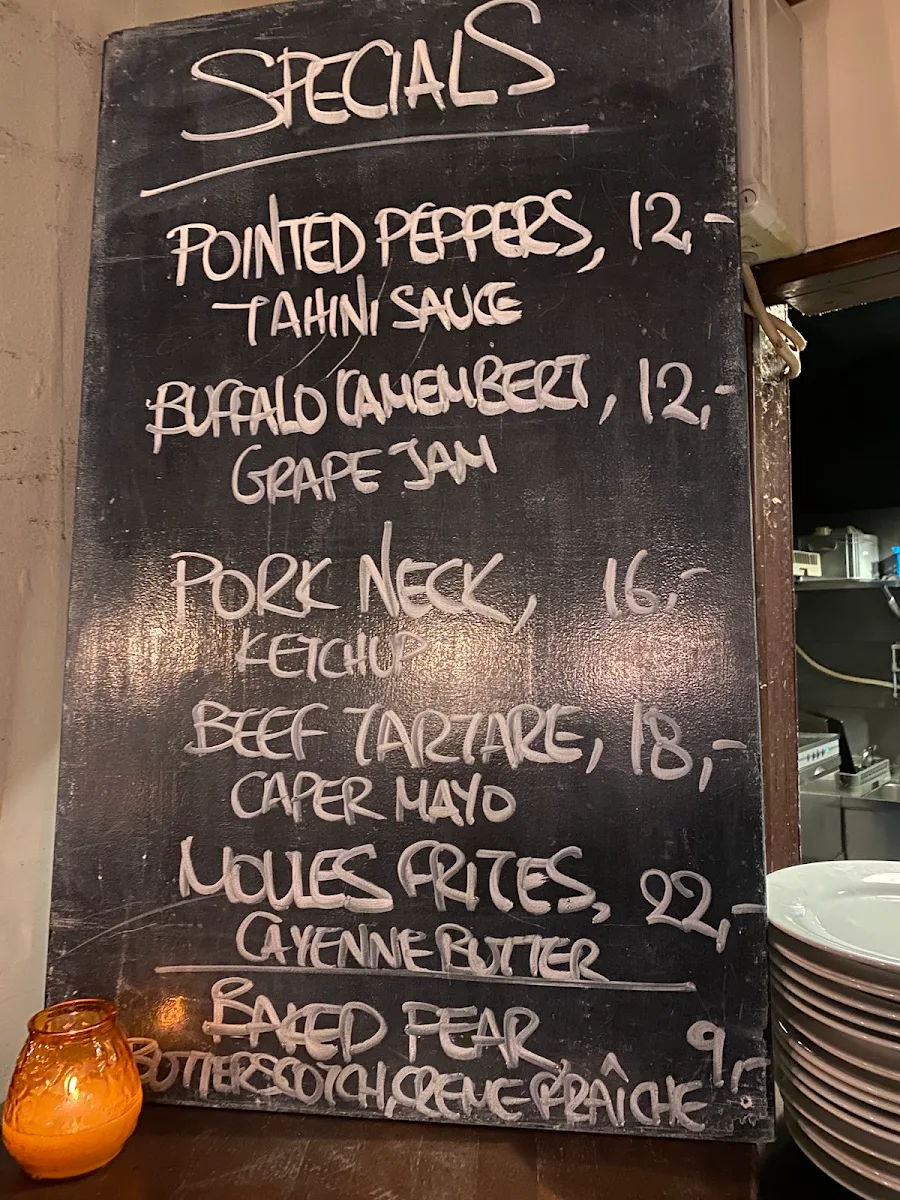 SPECIALS
POINTED PEPPERS, 12,-
TAHINI SAUCE
BUFFALO CAMEMBERT, 12,-
GRAPE JAM
PORK NECK, 16,-
KETCHUP
BEEF TARTARE, 18,-
CAPER MAYO
MOULES FRITES, 22,-
CAYENNE BUTTER
BAKED PEAR, 9,-
BUTTERSCOTCH, CREME FRAÎCHE